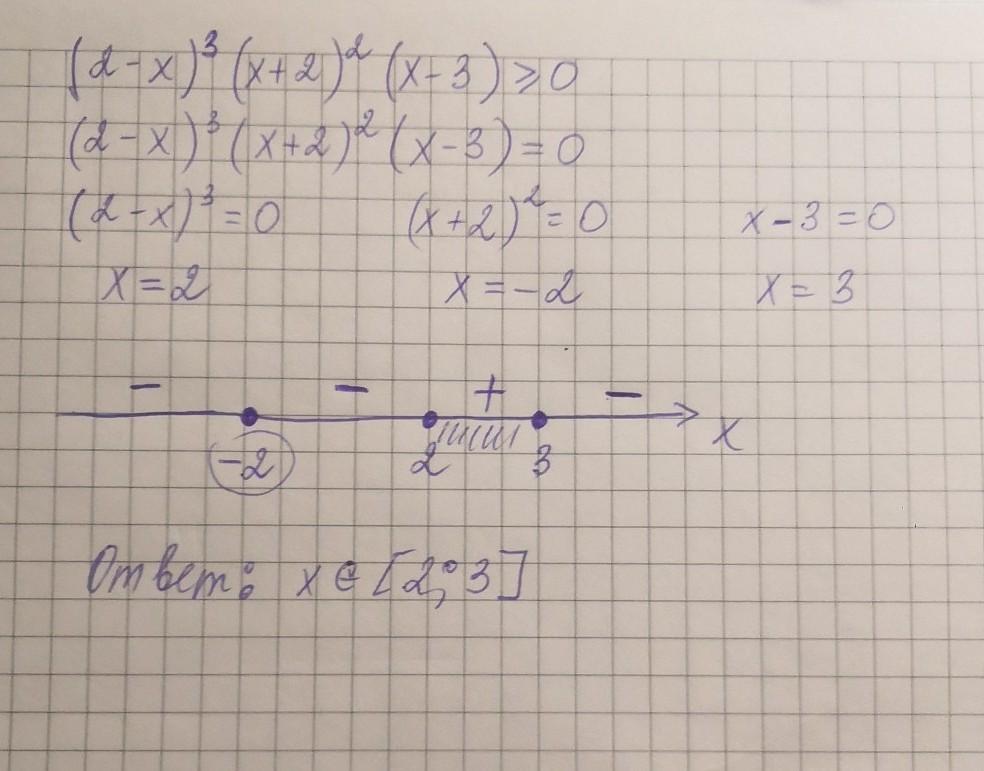 (2-x)³(x+2)²(x-3)⩾0
(2-x)³(x+2)²(x-3)=0
(2-x)³=0 (x+2)²=0 x-3=0
x=2 x=-2 x=3
- - + -
-2 2 3 x
Ответ: x∈[2;3]